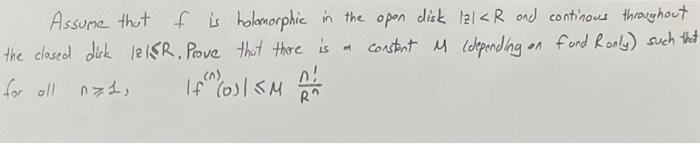 Assume that f is holomorphic in the open disk |z|<R and continous throughout
the closed disk |z|≤R. Prove that there is a constant M (depending on f and R only) such that
for all n≥1, |f^(n)(0)| ≤ M n!/R^n